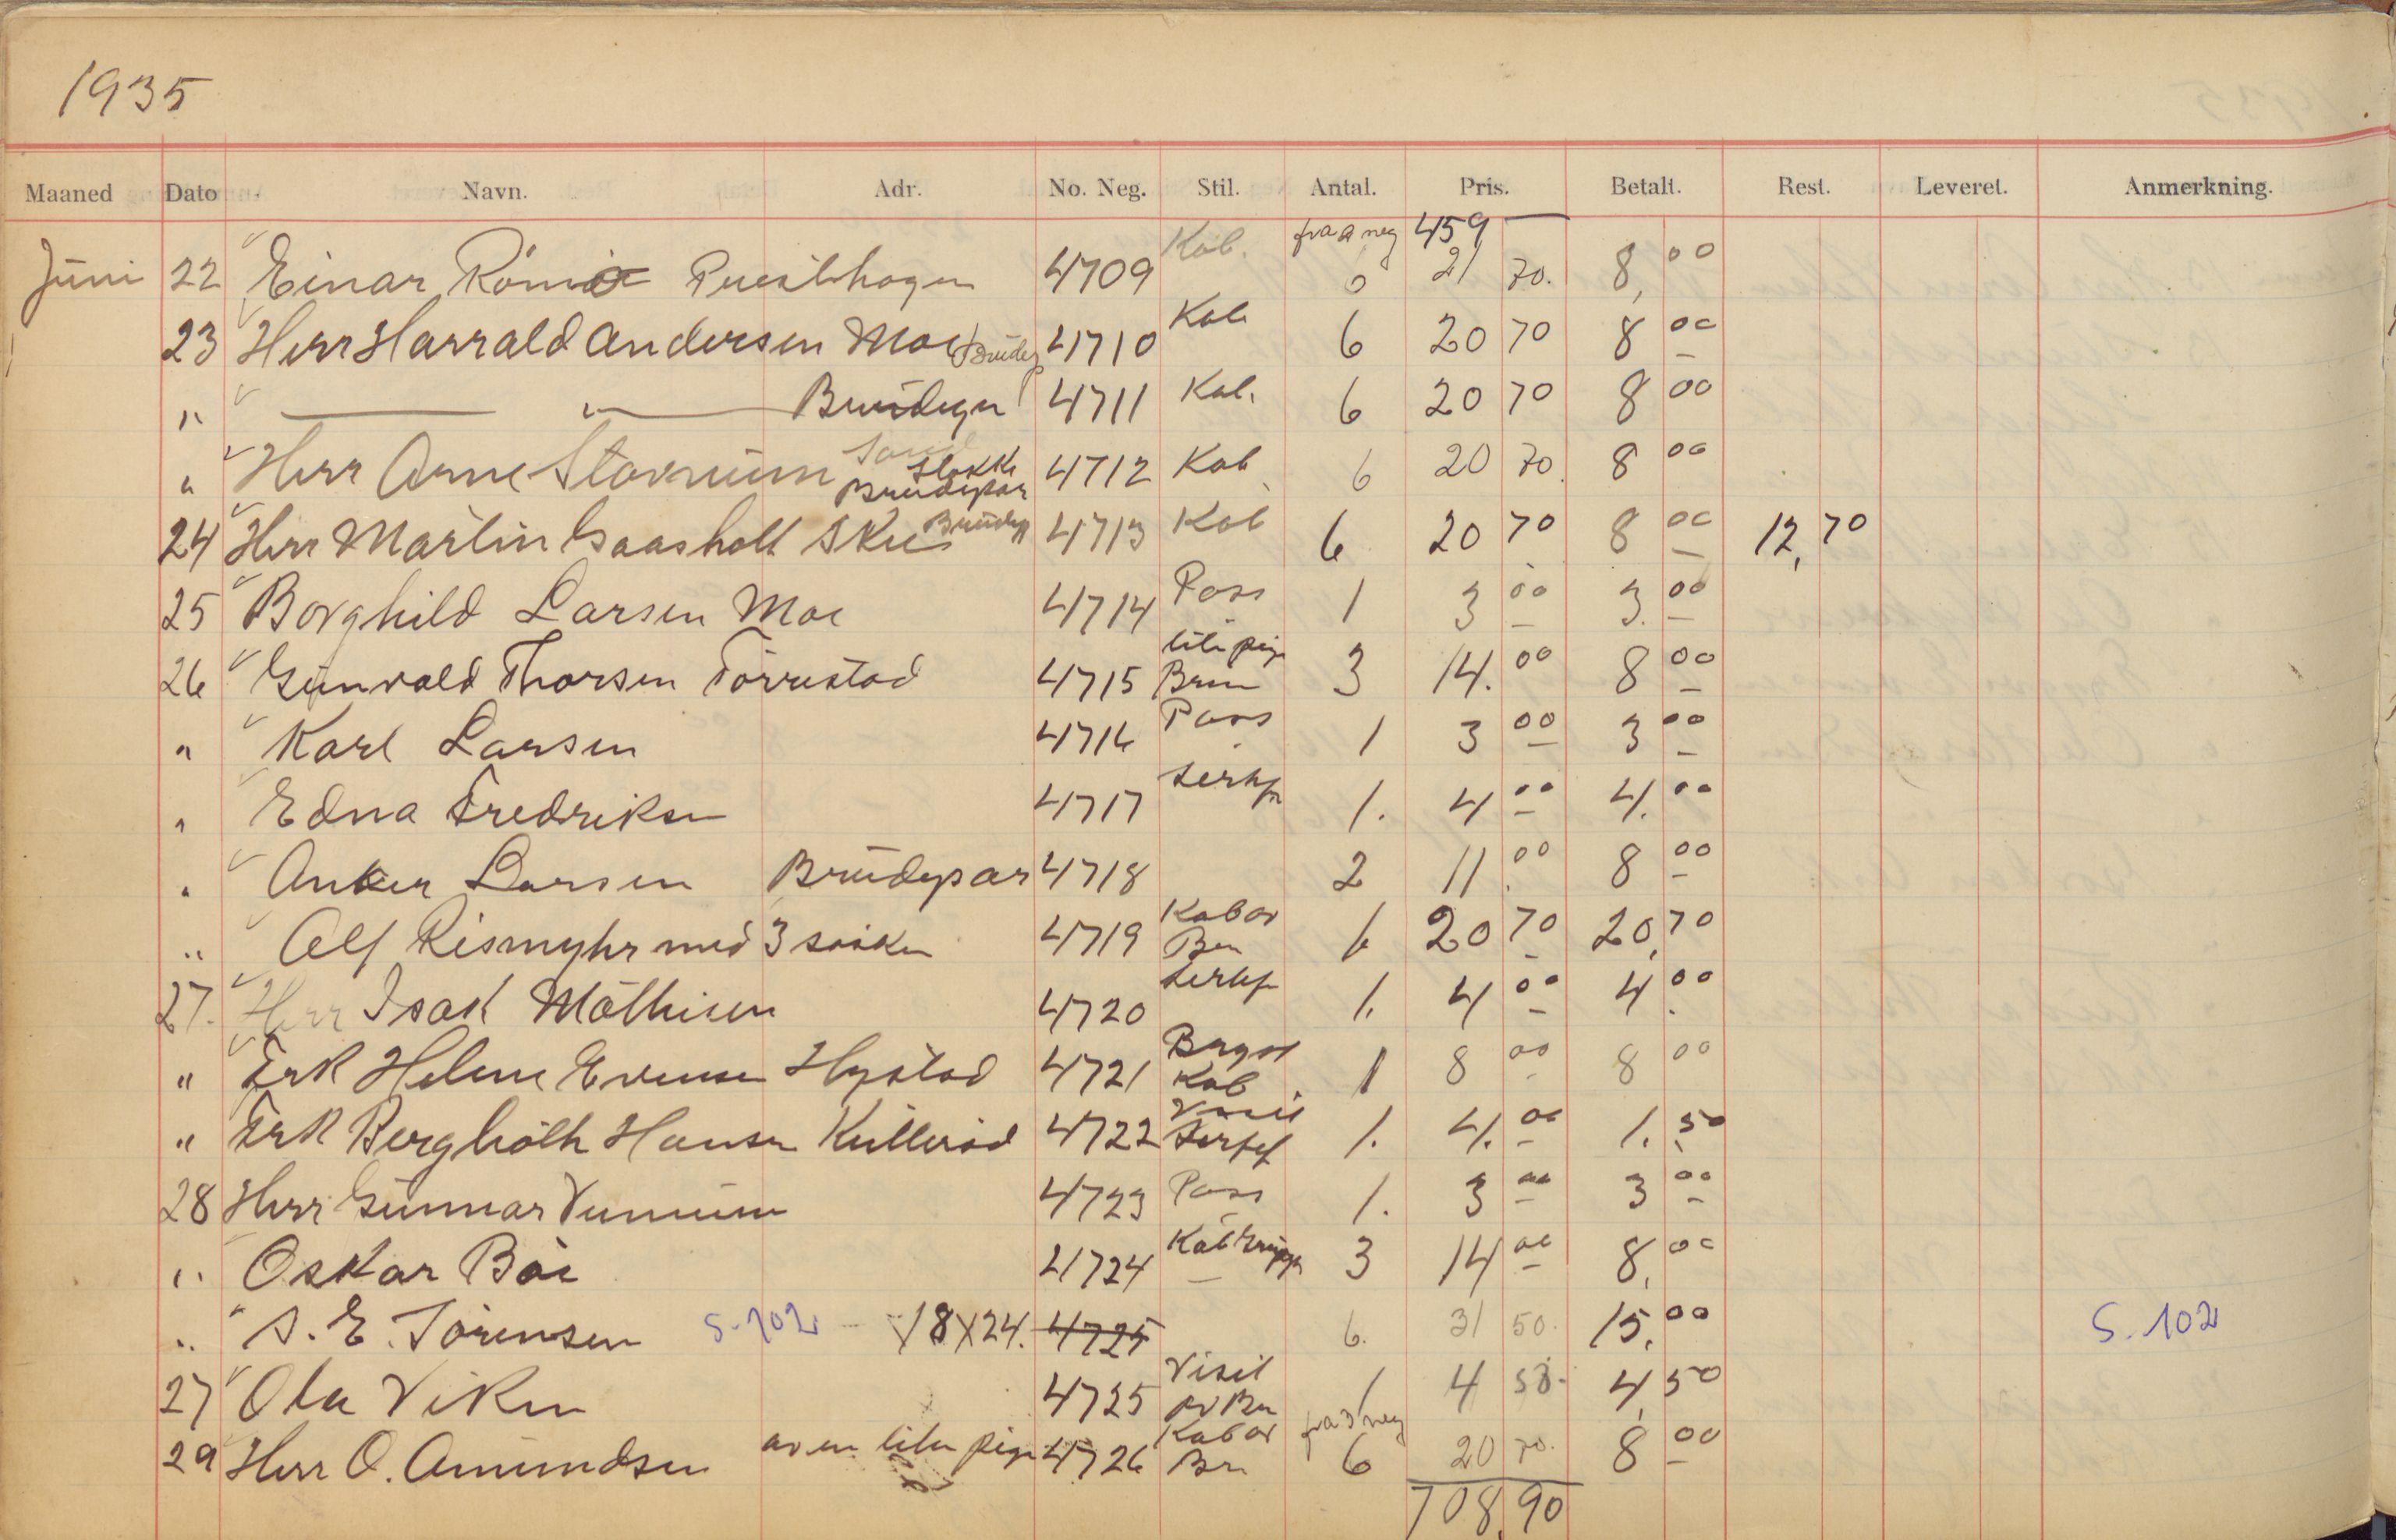 1935
Maaned Dato Navn. Adr. No. Neg. Stil. Antal. Pris. Betalt. Rest. Leveret. Anmerkning.
fra a neg 459 —
Juni 22 Einar 4709 Kab. 6 21 70. 8,00
23 Herr Harrald Andersen Moe Brudep 4710 Kab 6 20 70 8 00
" — " — 4711 Kab. 6 20 70 8 00
" Herr Arne Stavnum Sand Slokke Brudepar 4712 Kab 6 20 70 8 00
24 Herr Martin Gaasholt Skee Brudep 4713 Kab 6 20 70 8 00 12,70
25 Borghild Larsen Moe 4714 Pass 1 3 00 3.00
26 Gunvald Thorsen Torrestad 4715 lite pige Brun 3 14.00 8 00
" Karl Larsen 4716 Pass 1 3 00 3 00
" Edna Fredriksen 4717 1. 4 00 4.00
" Anker Larsen Brudepar 4718 2 11.00 8 00
" Alf Rismyhr med 3 søsken 4719 Kab av Bru 6 20 70 20,70
27. Herr Isak Mathisen 4720 1. 4 00 4.00
" Frk Helene Evensen Hystad 4721 Bryst Kab 1 8 00 8 00
" Frk Berglioth Hansen Kullerød 4722 Visit 1. 4.00 1.50
28 Herr Gunnar 4723 Pass 1. 3 00 3 00
" Oskar Bøe 4724 Kab Gruppe 3 14 00 8,00
" S. E. Sørensen S. 102 18X24. 4725 6. 31 50. 15,00 S. 102
27 Ola Viken 4725 Visit av Bru 1 4 50. 4,50
29 Herr O. Amundsen av en liten pige 4726 Kab av Bru fra 3 neg 6 20 70. 8 00
708,90